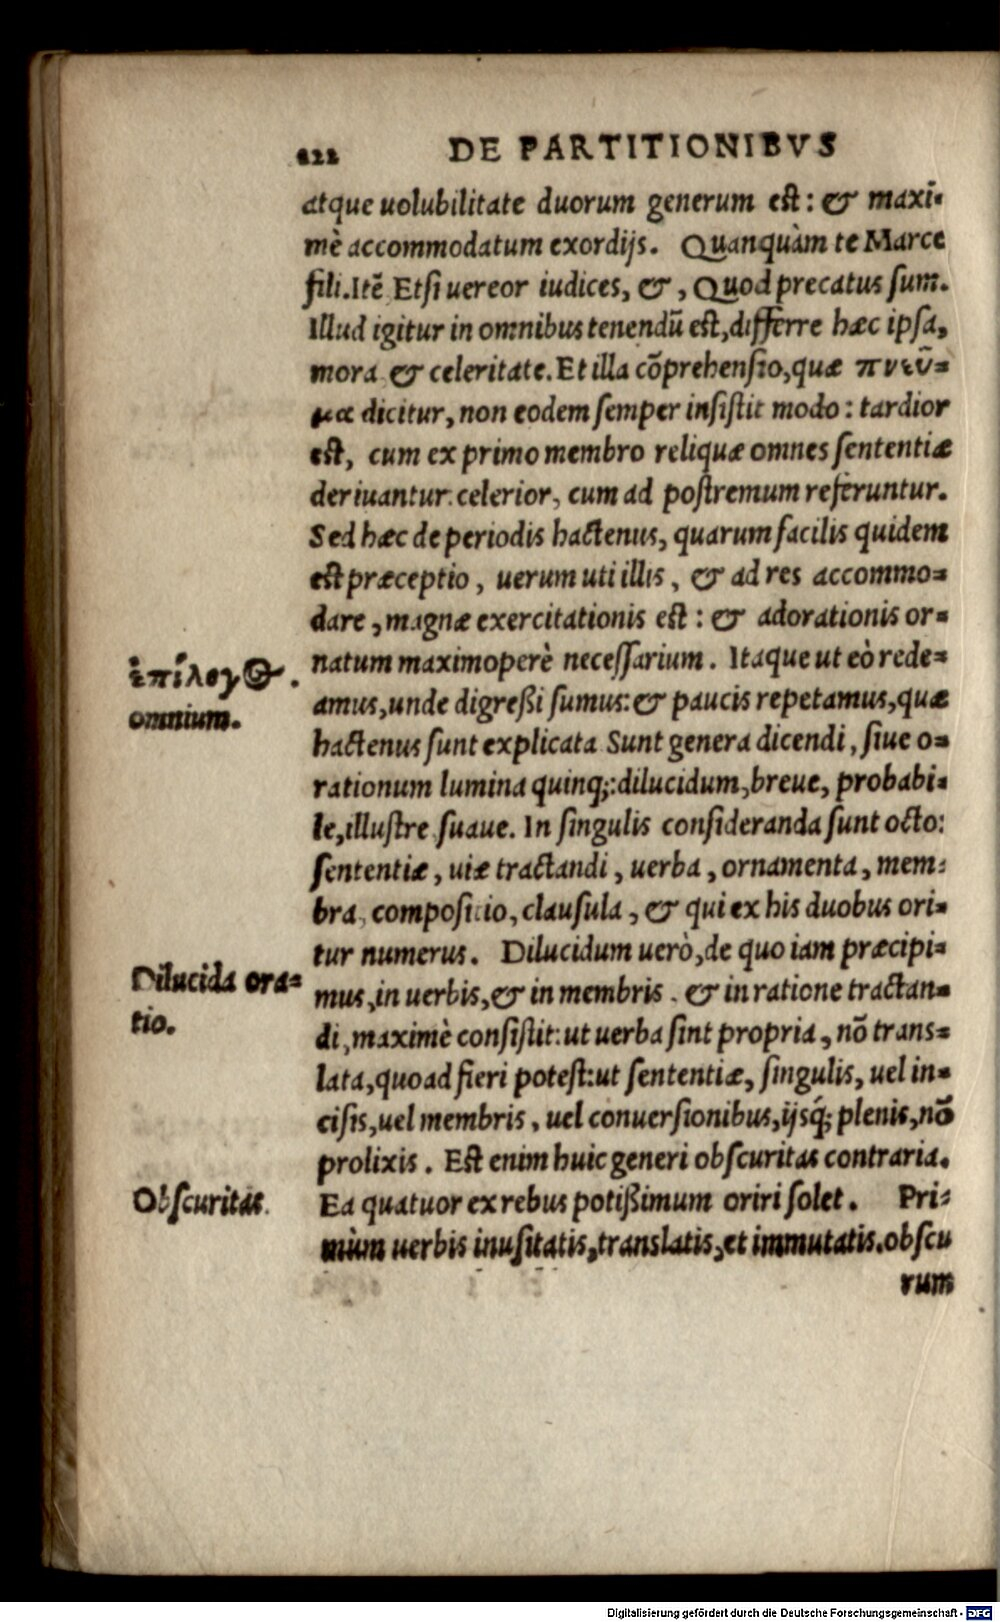 122 DE PARTITIONIBVS
atque uolubilitate duorum generum est: & maxi-
mè accommodatum exordijs. Quanquàm te Marce
fili. Itẽ Etsi uereor iudices, &, Quod precatus sum.
Illud igitur in omnibus tenendũ est, differre hæc ipsa,
mora & celeritate. Et illa cõprehensio, quæ πνεῦ=
μα dicitur, non eodem semper insistit modo: tardior
est, cum ex primo membro reliquæ omnes sententiæ
deriuantur: celerior, cum ad postremum referuntur.
Sed hæc de periodis hactenus, quarum facilis quidem
est præceptio, uerum uti illis, & ad res accommo=
dare, magnæ exercitationis est: & adorationis or=
natum maximoperè necessarium. Itaque ut eò rede=
ἐπίλογος.
amus, unde digreßi sumus: & paucis repetamus, quæ
omnium.
hactenus sunt explicata Sunt genera dicendi, siue o=
rationum lumina quinq;: dilucidum, breue, probabi=
le, illustre suaue. In singulis consideranda sunt octo:
sententiæ, uiæ tractandi, uerba, ornamenta, mem=
bra, compositio, clausula, & qui ex his duobus ori=
tur numerus. Dilucidum uerò, de quo iam præcipi=
Dilucida ora=
mus, in uerbis, & in membris. & in ratione tractan=
tio.
di, maximè consistit: ut uerba sint propria, nõ trans=
lata, quoad fieri potest: ut sententiæ, singulis, uel in=
cisis, uel membris, uel conuersionibus, ijsq́; plenis, nõ
prolixis. Est enim huic generi obscuritas contraria.
Obscuritas.
Ea quatuor ex rebus potißimum oriri solet. Pri=
mùm uerbis inusitatis, translatis, et immutatis. obscu
rum
Digitalisierung gefördert durch die Deutsche Forschungsgemeinschaft - DFG